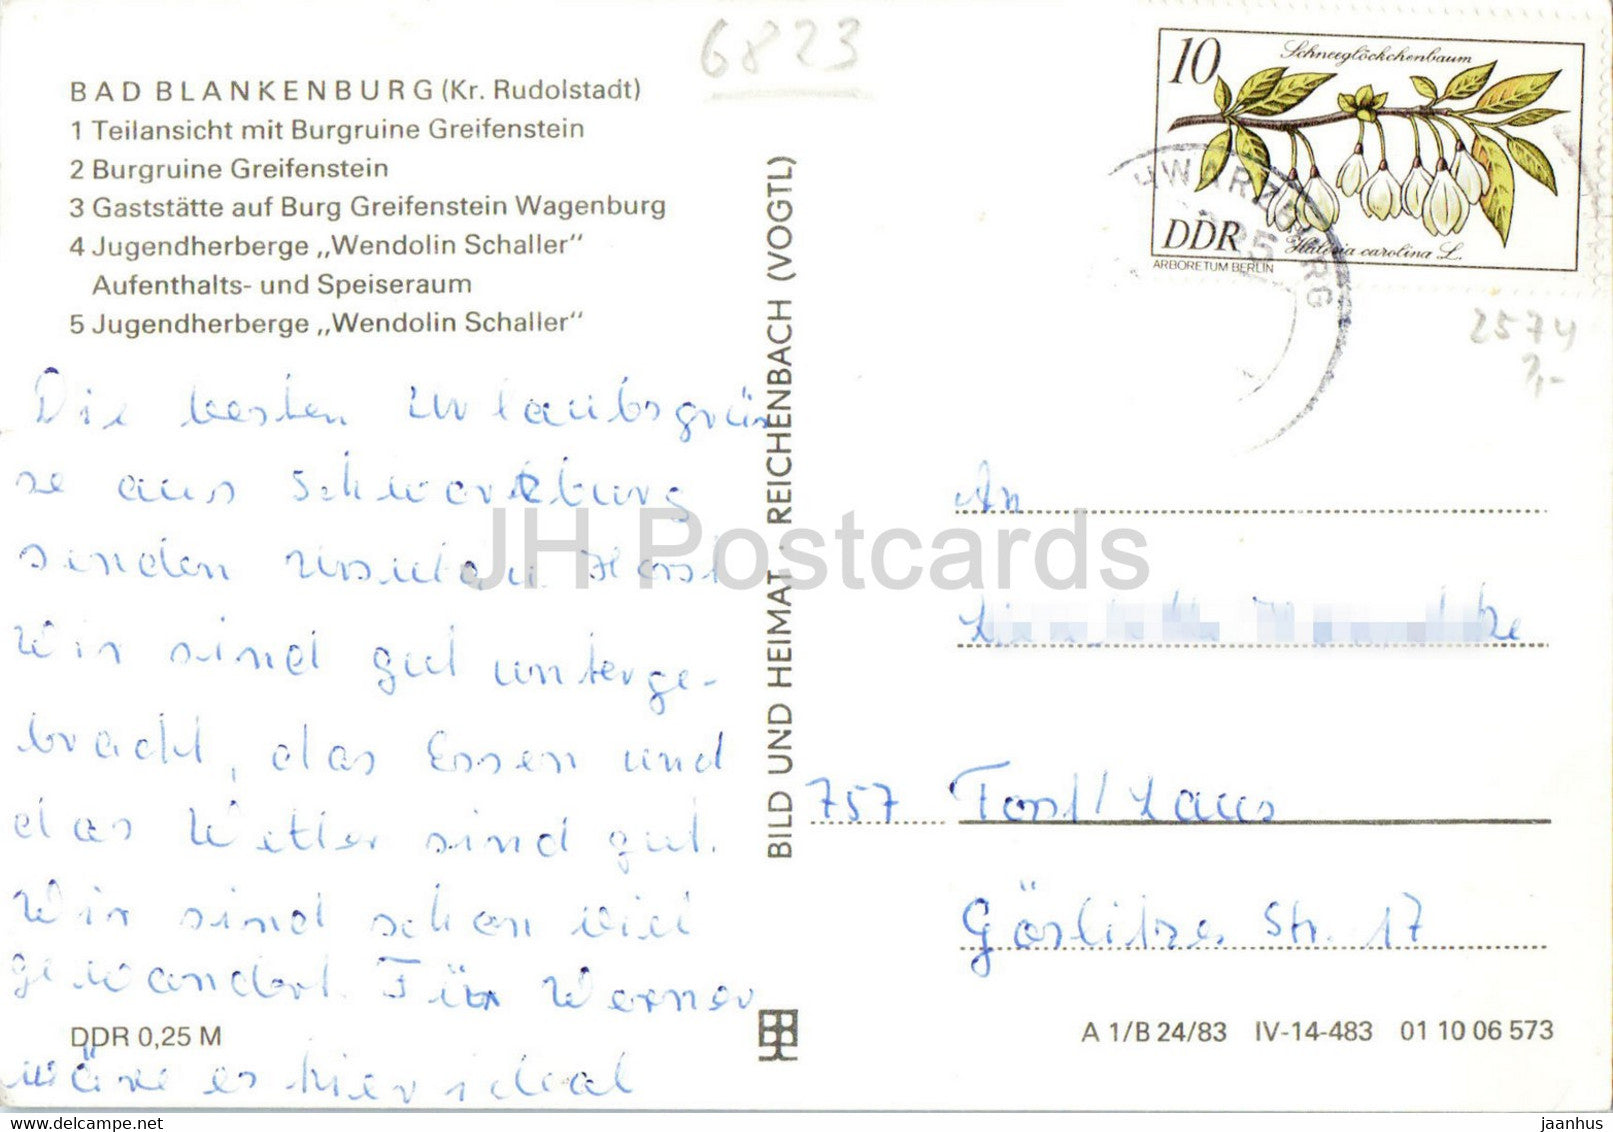 6823
BAD BLANKENBURG (Kr. Rudolstadt)
1 Teilansicht mit Burgruine Greifenstein
2 Burgruine Greifenstein
3 Gaststätte auf Burg Greifenstein Wagenburg
4 Jugendherberge „Wendolin Schaller“
Aufenthalts- und Speiseraum
5 Jugendherberge „Wendolin Schaller“
Die besten Urlaubsgrüs
se aus Schwarzburg
senden Horst
Wir sind gut unterge-
bracht, das Essen und
das Wetter sind gut.
Wir sind schon viel
gewandert. Für Werner
wäre es hier ideal
DDR 0,25 M
BILD UND HEIMAT REICHENBACH (VOGTL)
10
Schneeglöckchenbaum
DDR
Halesia carolina L.
ARBORETUM BERLIN
HWARZBURG
2574
An
757 Forst/Laus
Görlitzer Str. 17
A 1/B 24/83 IV-14-483 01 10 06 573
JH Postcards
jaanhus
delcampe.net